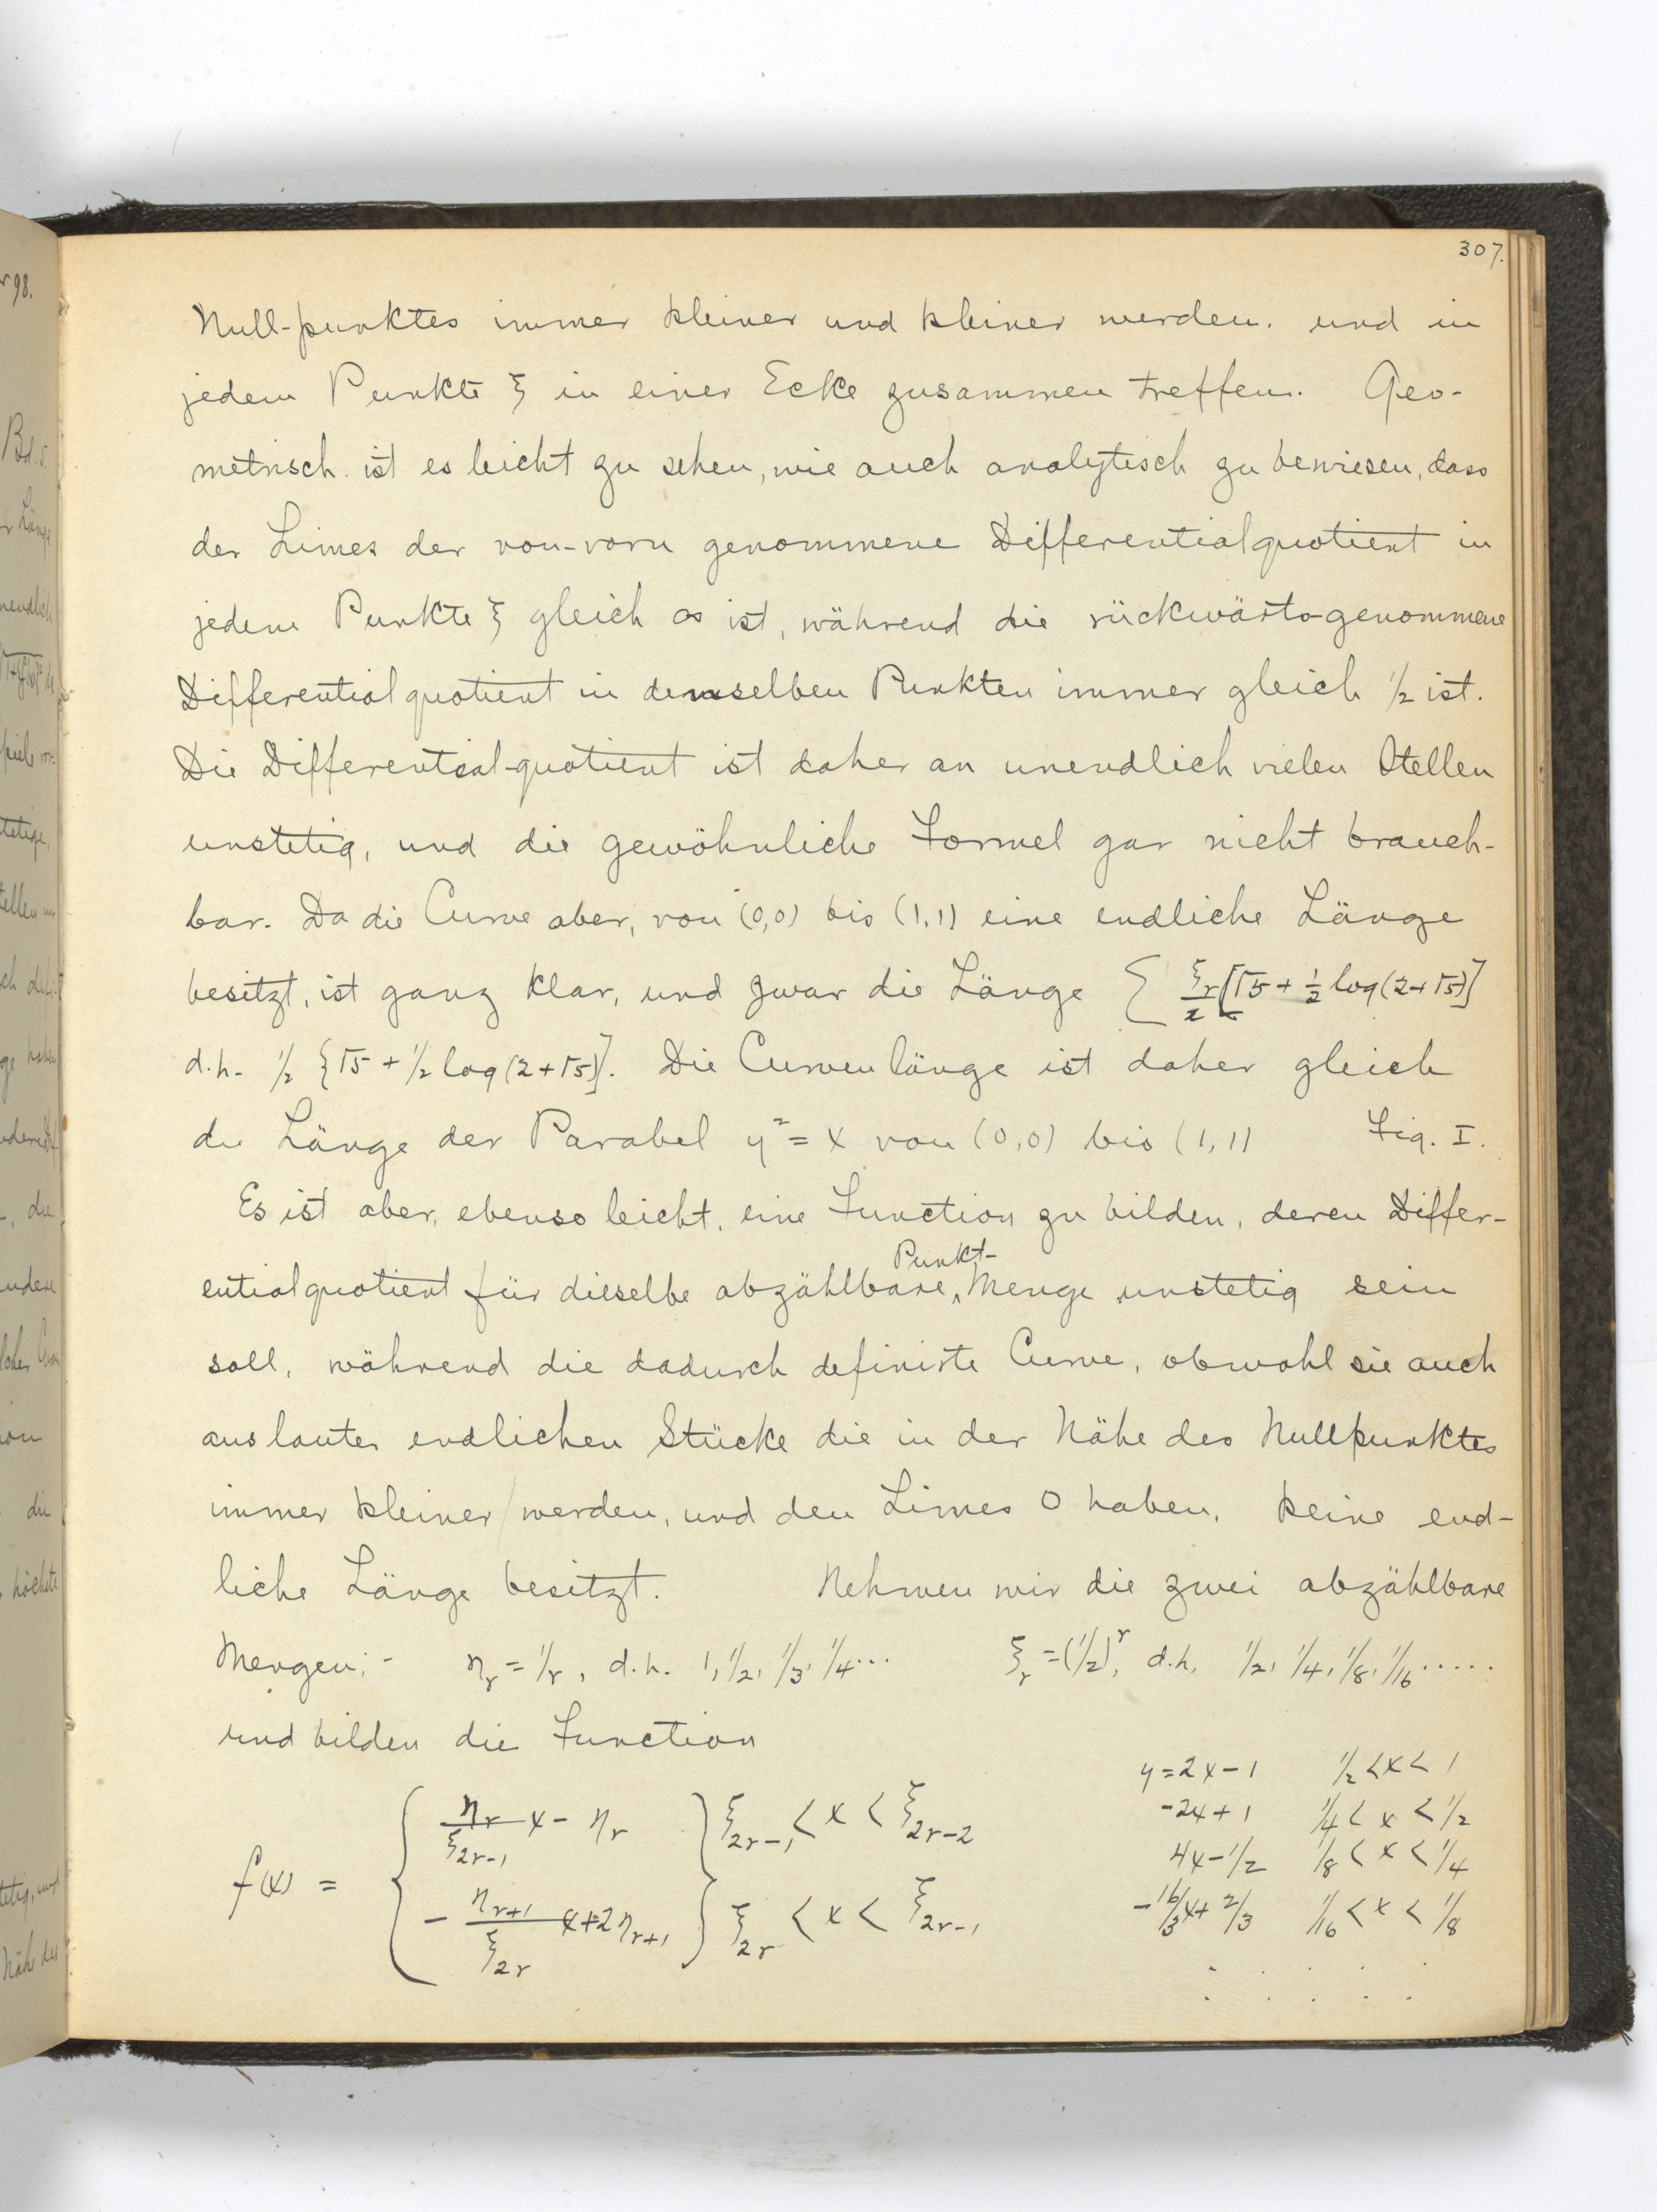 307.
Null-punktes immer kleiner und kleiner werden. und in
jedem Punkte ξ in einer Ecke zusammen treffen. Geo-
metrisch ist es leicht zu sehen, wie auch analytisch zu bewiesen, dass
der Limes der von-vorn genommene Differentialquotient in
jedem Punkte ξ gleich ∞ ist, während die rückwärts-genommene
Differentialquotient in denselben Punkten immer gleich 1/2 ist.
Die Differential-quotient ist daher an unendlich vielen Stellen
unstetig, und die gewöhnliche Formel gar nicht brauch-
bar. Da die Curve aber, von (0,0) bis (1,1) eine endliche Länge
besitzt, ist ganz klar, und zwar die Länge Σ ξr/2 [√5 + 1/2 log(2+√5)]
d.h. 1/2 {√5 + 1/2 log(2+√5)}. Die Curvenlänge ist daher gleich
die Länge der Parabel y² = x von (0,0) bis (1,1) Fig. I.
Es ist aber, ebenso leicht, eine Function zu bilden, deren Differ-
entialquotient für dieselbe abzählbare Punkt-Menge unstetig sein
soll, während die dadurch definirte Curve, obwohl sie auch
aus lauter endlichen Stücke die in der Nähe des Nullpunktes
immer kleiner werden, und den Limes 0 haben, keine end-
liche Länge besitzt. Nehmen wir die zwei abzählbare
Mengen:- ηr = 1/r, d.h. 1, 1/2, 1/3, 1/4... ξr = (1/2)^r, d.h. 1/2, 1/4, 1/8, 1/16.....
und bilden die Function
y = 2x-1 1/2 < x < 1
-2x+1 1/4 < x < 1/2
4x-1/2 1/8 < x < 1/4
-16/3x+2/3 1/16 < x < 1/8
f(x) = { ηr/ξ2r-1 x - ηr } ξ2r-1 < x < ξ2r-2
- ηr+1/ξ2r x+2ηr+1 } ξ2r < x < ξ2r-1